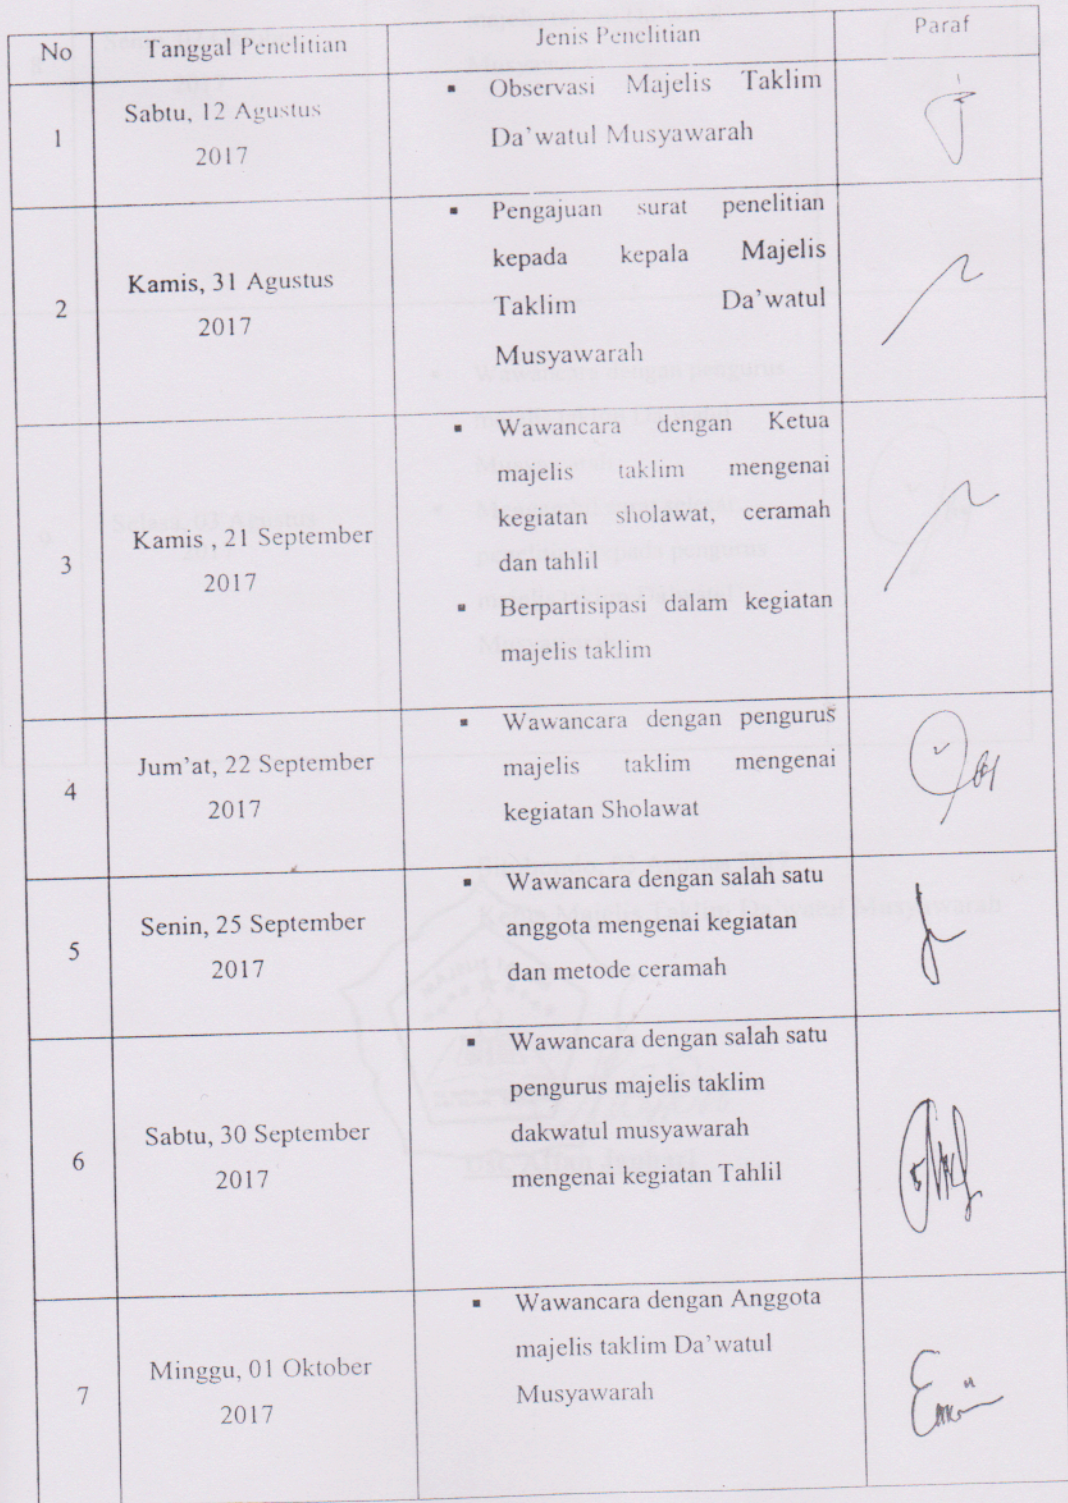 No Tanggal Penelitian Jenis Penelitian Paraf
1
Sabtu, 12 Agustus
2017
▪ Observasi Majelis Taklim
Da'watul Musyawarah
2
Kamis, 31 Agustus
2017
▪ Pengajuan surat penelitian
kepada kepala Majelis
Taklim Da'watul
Musyawarah
3
Kamis , 21 September
2017
▪ Wawancara dengan Ketua
majelis taklim mengenai
kegiatan sholawat, ceramah
dan tahlil
▪ Berpartisipasi dalam kegiatan
majelis taklim
4
Jum'at, 22 September
2017
▪ Wawancara dengan pengurus
majelis taklim mengenai
kegiatan Sholawat
5
Senin, 25 September
2017
▪ Wawancara dengan salah satu
anggota mengenai kegiatan
dan metode ceramah
6
Sabtu, 30 September
2017
▪ Wawancara dengan salah satu
pengurus majelis taklim
dakwatul musyawarah
mengenai kegiatan Tahlil
7
Minggu, 01 Oktober
2017
▪ Wawancara dengan Anggota
majelis taklim Da'watul
Musyawarah